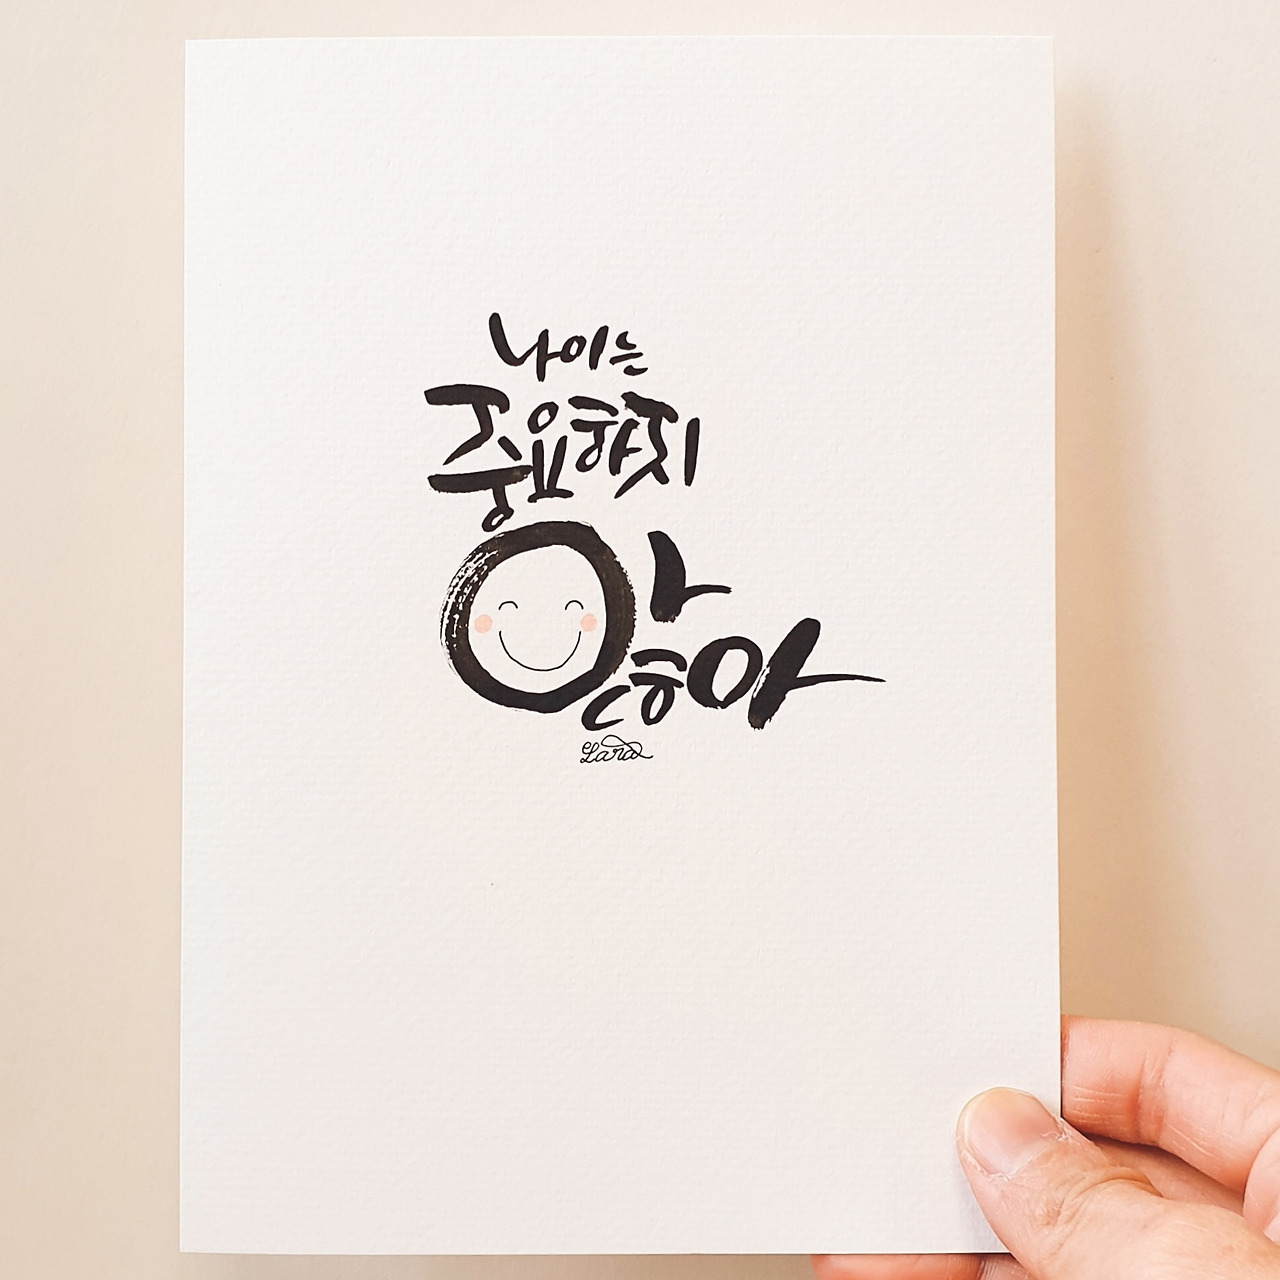 나이는
중요하지
않아
Lara